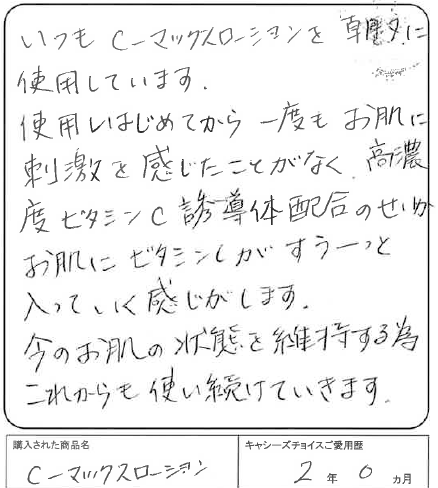 いつもCーマックスローションを朝晩に
使用しています.
使用しはじめてから一度もお肌に
刺激を感じたことがなく、高濃
度ビタミンC誘導体配合のせいか
お肌にビタミンCがすうーっと
入っていく感じがします.
今のお肌の状態を維持する為
これからも使い続けていきます.
購入された商品名
Cーマックスローション
キャシーズチョイスご愛用歴
2年0ヵ月